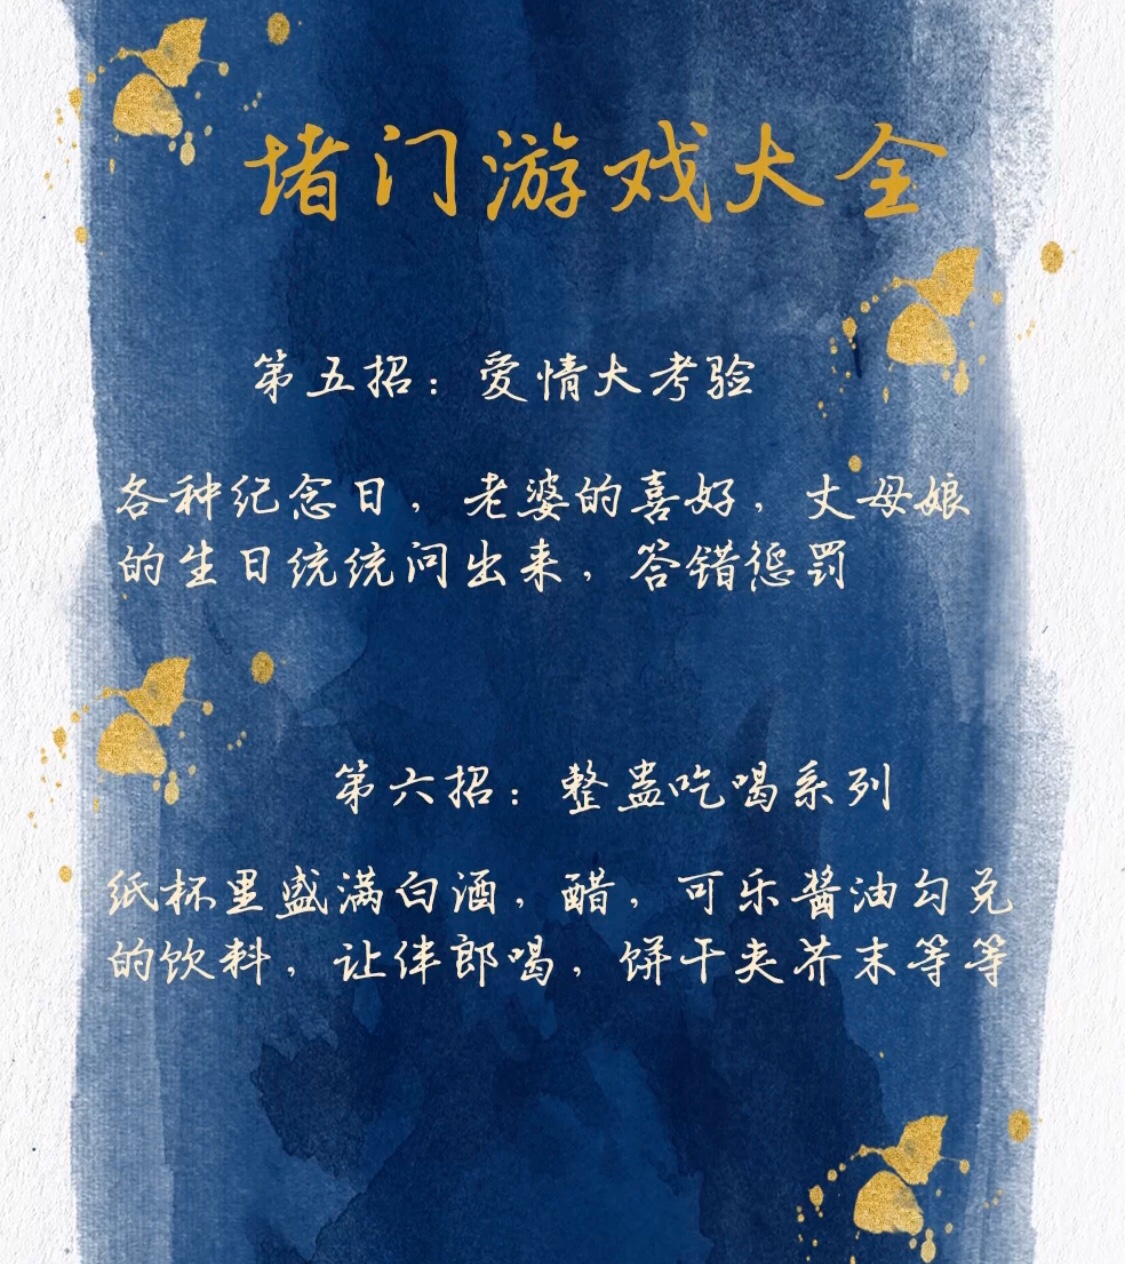 堵门游戏大全
第五招：爱情大考验
各种纪念日，老婆的喜好，丈母娘
的生日统统问出来，答错惩罚
第六招：整蛊吃喝系列
纸杯里盛满白酒，醋，可乐酱油勾兑
的饮料，让伴郎喝，饼干夹芥末等等